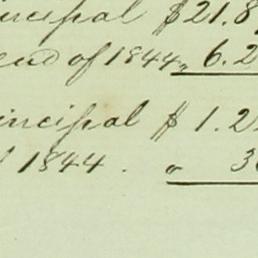 incipal $21.8
end of 1844 „ 6.2
incipal $ 1.2
1844. „ 3